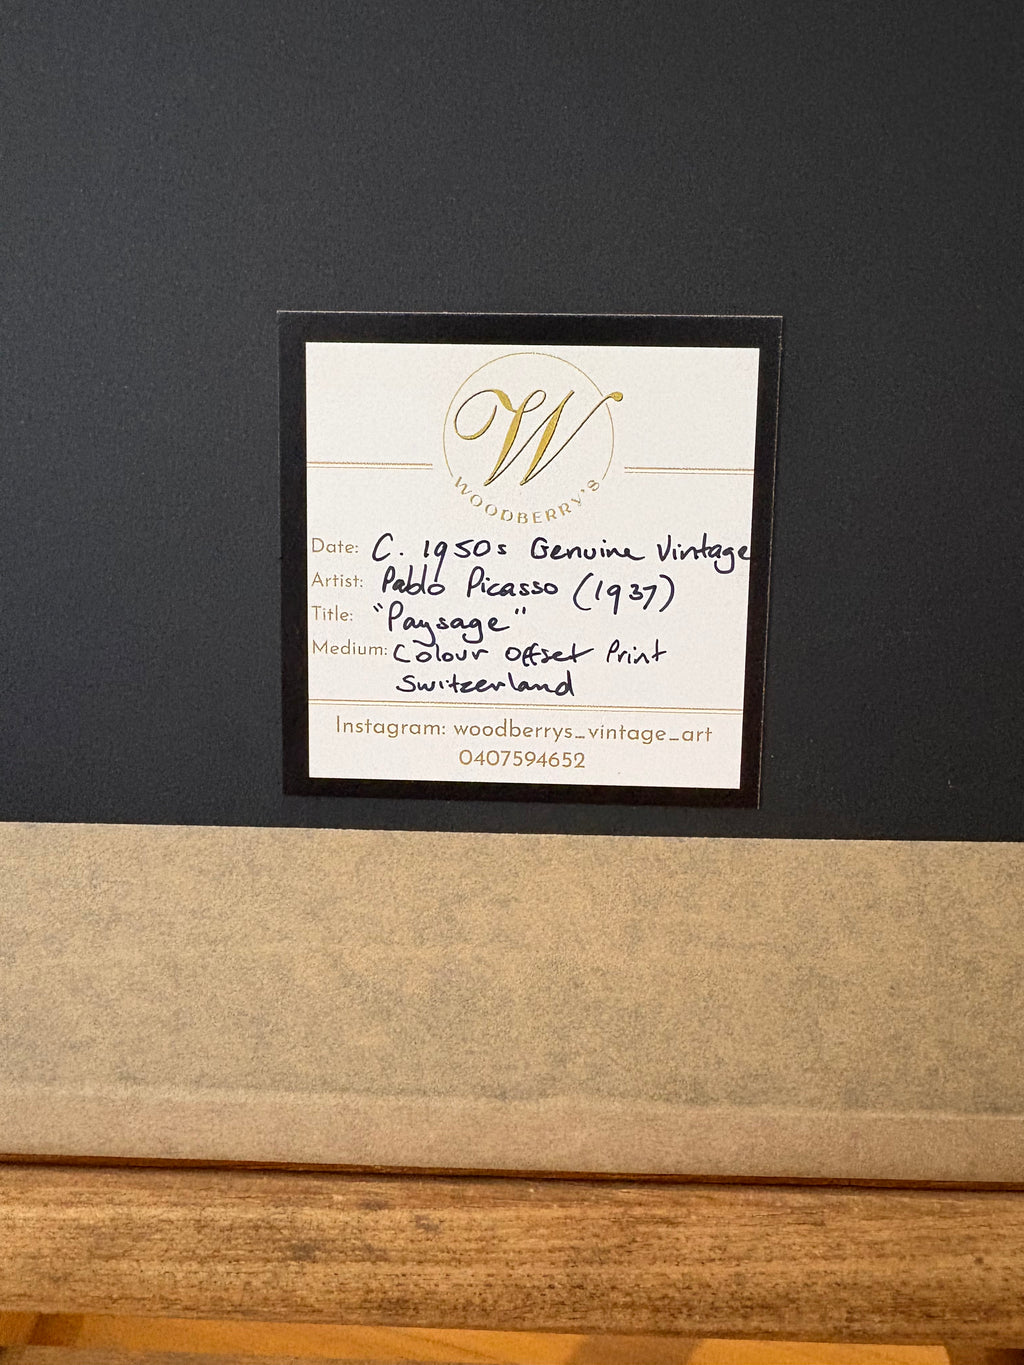 W
WOODBERRY'S
Date: C. 1950s Genuine Vintage
Artist: Pablo Picasso (1937)
Title: "Paysage"
Medium: Colour Offset Print
Switzerland
Instagram: woodberrys_vintage_art
0407594652